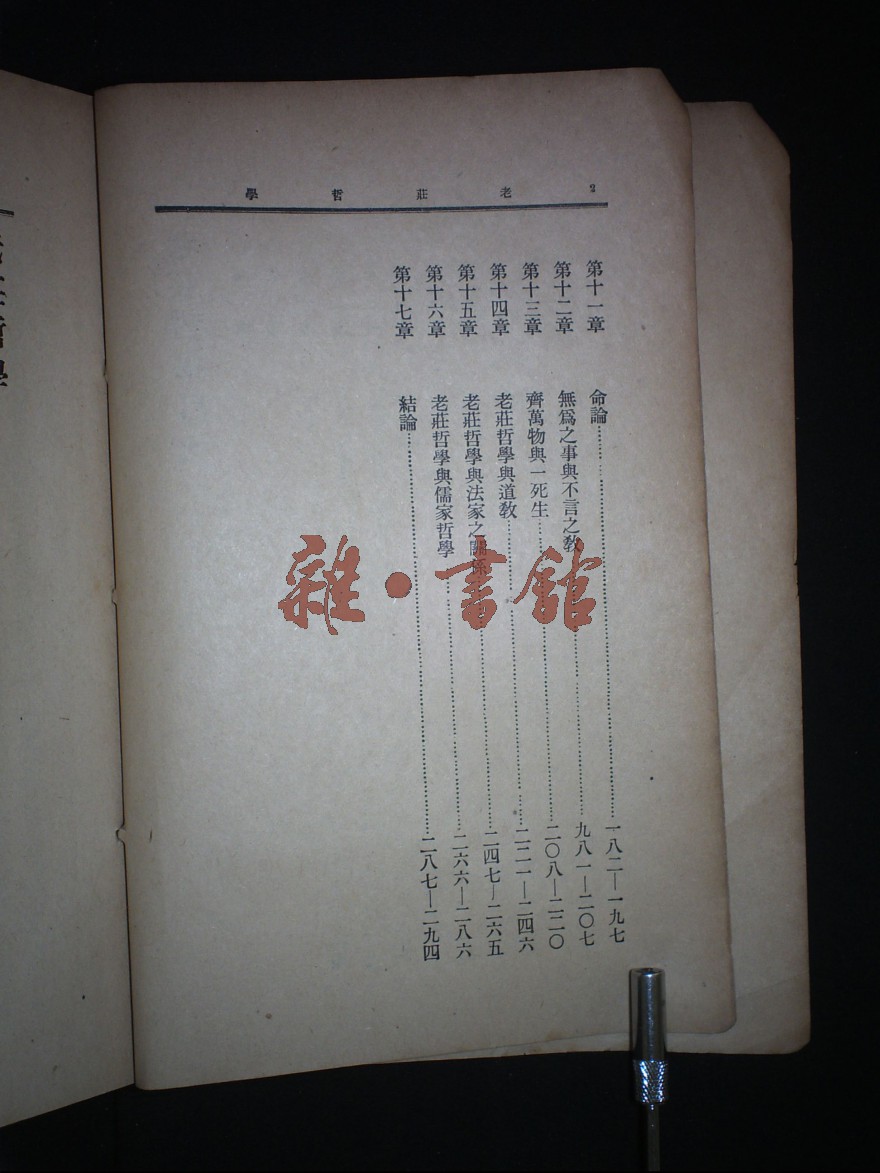 2 老莊哲學
第十一章 命論……一八二—一九七
第十二章 無爲之事與不言之敎……九八一—二〇七
第十三章 齊萬物與一死生……二〇八—二二〇
第十四章 老莊哲學與道敎……二二一—二四六
第十五章 老莊哲學與法家之關係……二四七—二六五
第十六章 老莊哲學與儒家哲學……二六六—二八六
第十七章 結論……二八七—二九四
雜·書館